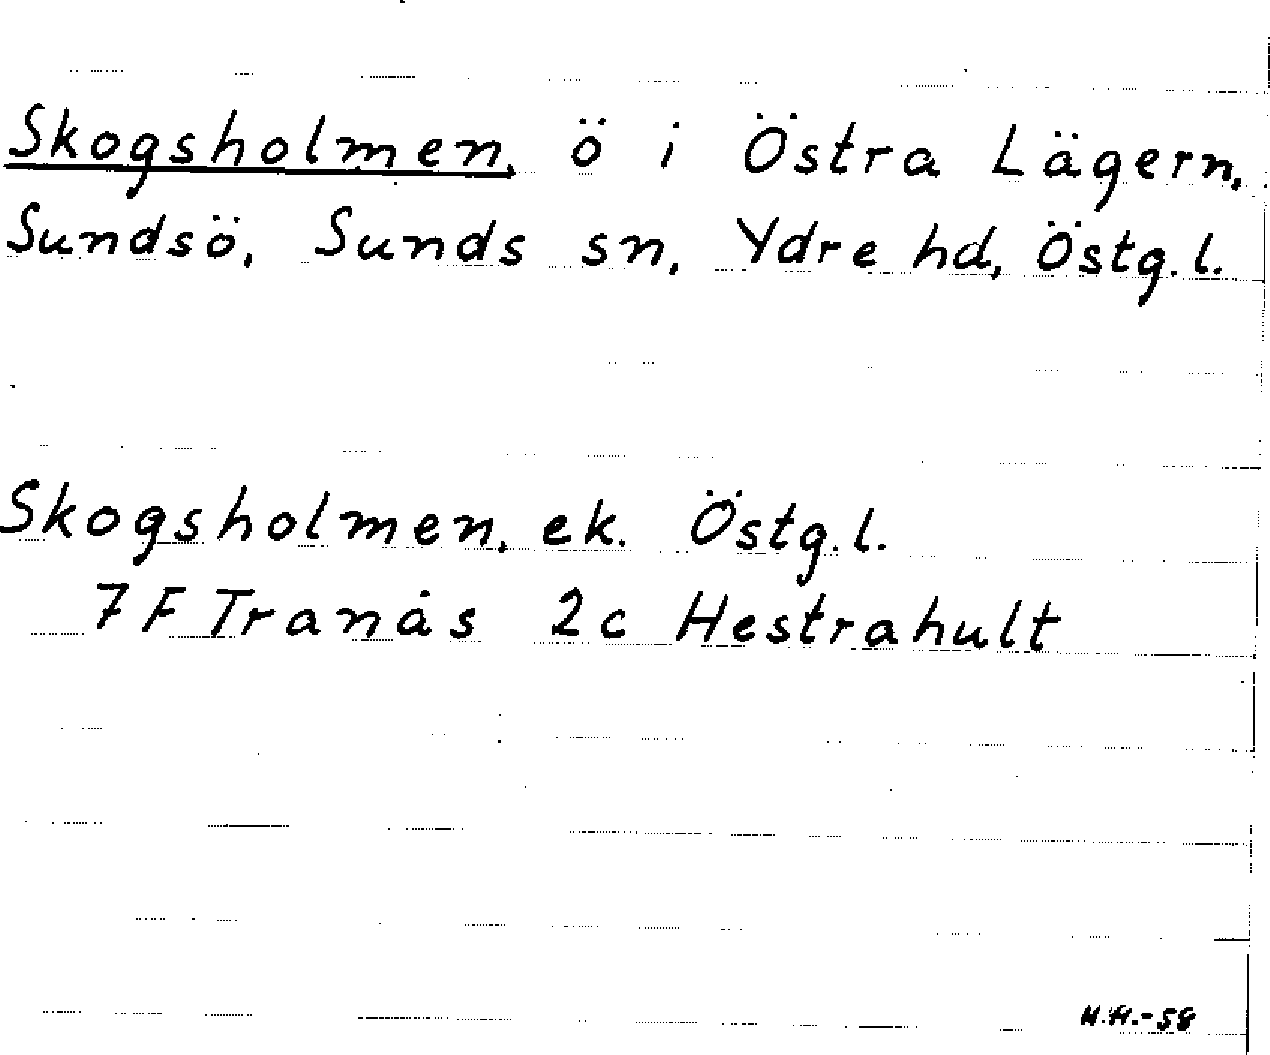 Skogsholmen, ö i Östra Lägern,
Sundsö, Sunds sn, Ydre hd, Östg.l.
Skogsholmen, ek. Östg.l.
7 F Tranås 2c Hestrahult
H.H.-58